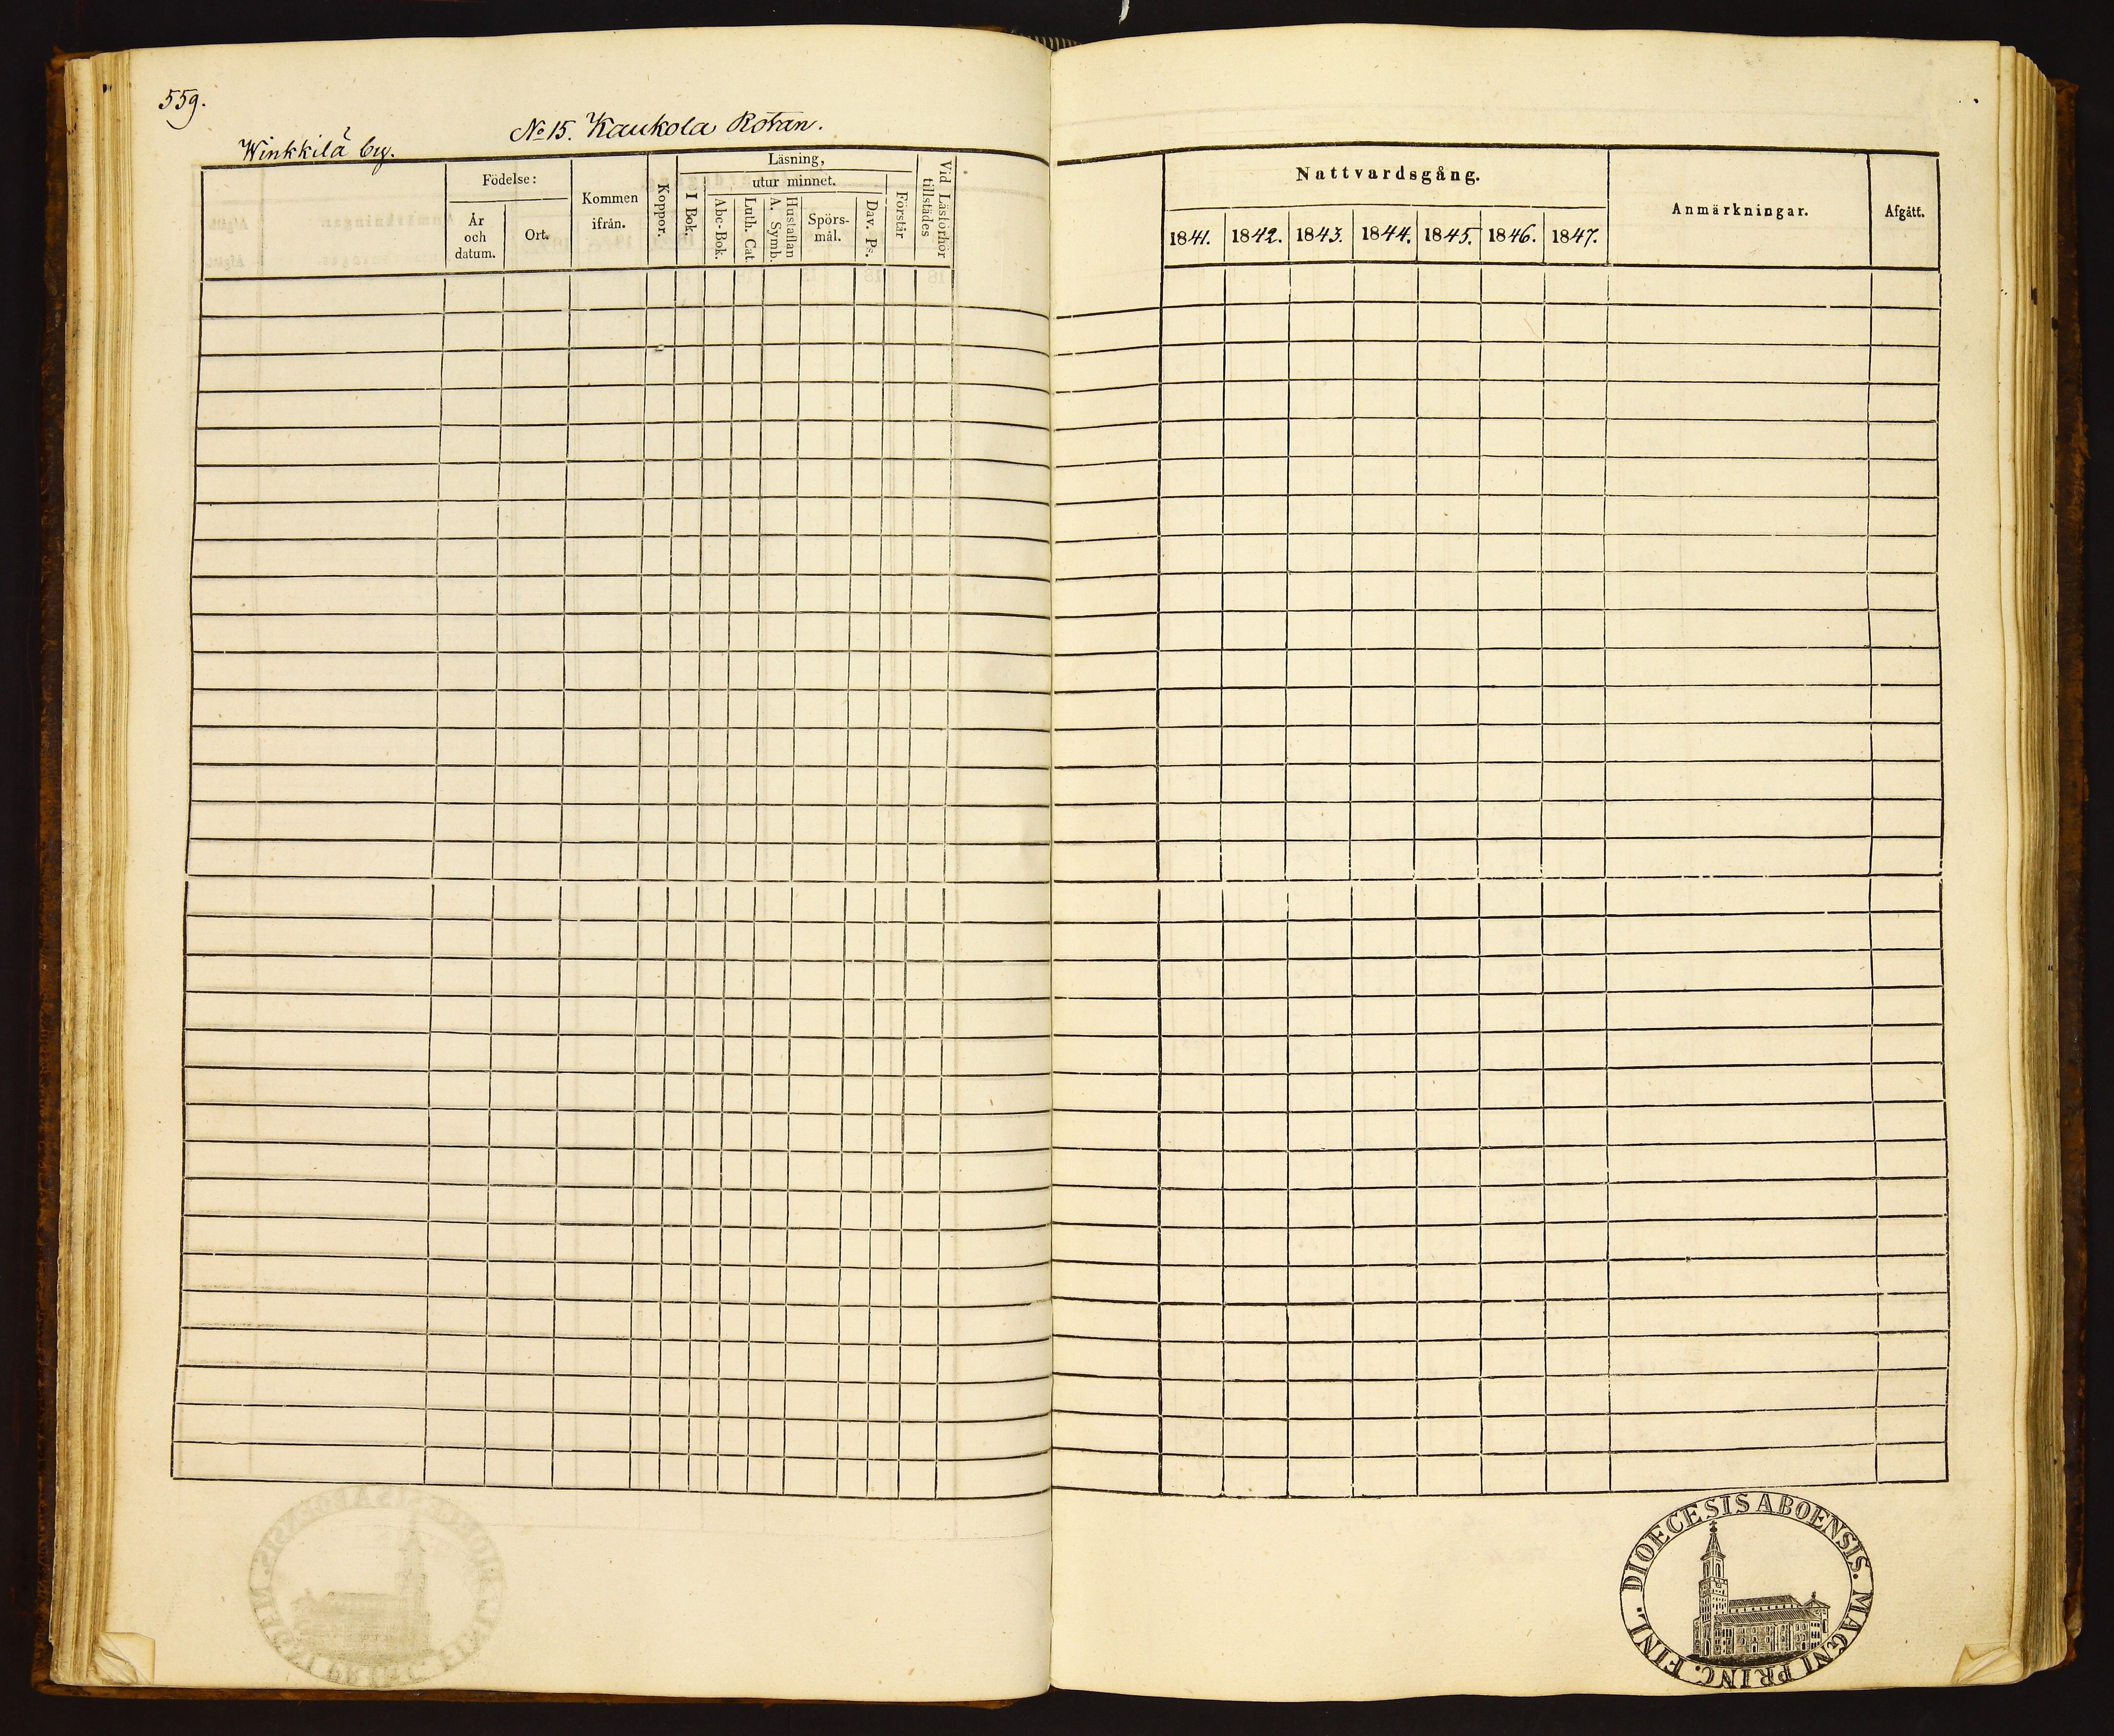 559.
No 15. Kaukola Rotan.
Winkkilä by.
Födelse:
År
och
datum.
Ort.
Kommen
ifrån.
Koppor.
Läsning,
I Bok.
utur minnet.
Abc-Bok.
Luth. Cat.
Hustaflan
A. Symb.
Spörs-
mål.
Dav. Ps.
Förstår
Vid Läsförhör
tillstädes
Nattvardsgång.
1841. 1842. 1843. 1844. 1845. 1846. 1847.
Anmärkningar.
Afgått.
DIOECESIS ABOENSIS. MAGNI PRINC. FINL.